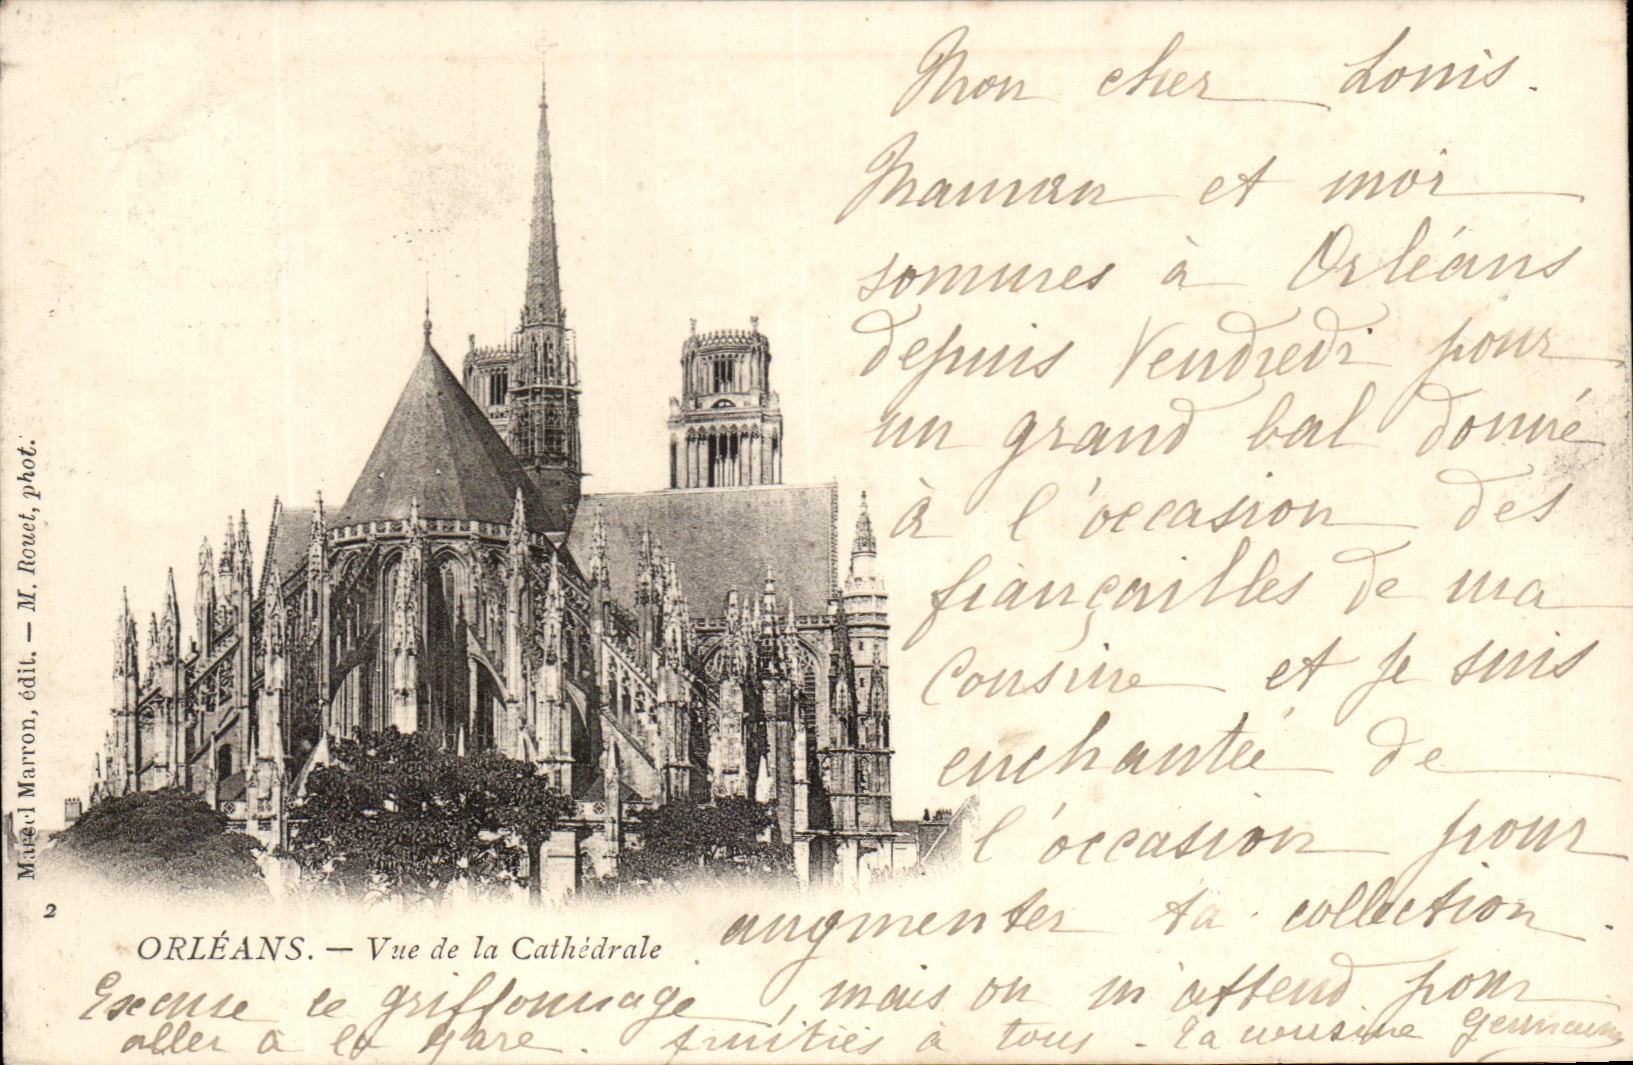 Mon cher Louis.
Maman et moi
sommes à Orléans
depuis Vendredi pour
un grand bal donné
à l'occasion des
fiançailles de ma
Cousine et je suis
enchantée de
l'occasion pour
augmenter ta collection.
Excuse ce griffonnage, mais on m'attend pour
aller à la gare. Amitiés à tous - Ta cousine Germaine
ORLÉANS. — Vue de la Cathédrale
2
Marcel Marron, édit. — M. Rouet, phot.